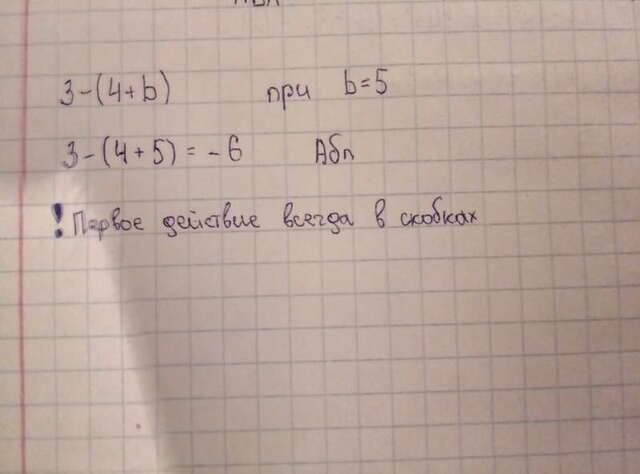 3-(4+b) при b=5
3-(4+5)=-6 Абп
! Первое действие всегда в скобках